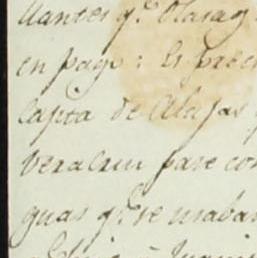 llantes q.e Olaraz
en pago: Es preci
Capita de Alajas
Veracruz para con
guas q.e se usaban